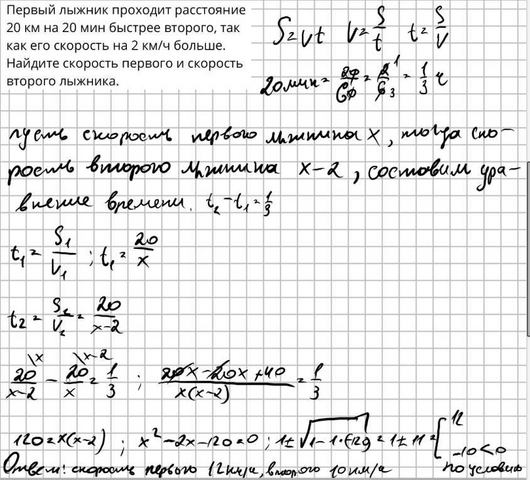 Первый лыжник проходит расстояние
20 км на 20 мин быстрее второго, так
как его скорость на 2 км/ч больше.
Найдите скорость первого и скорость
второго лыжника.
S=Vt V=S/t t=S/V
20мин=20/60=2/6=1/3 ч
пусть скорость первого лыжника x, тогда ско-
рость второго лыжника x-2, составим ура-
внение времени. t₂-t₁=1/3
t₁=S₁/V₁; t₁=20/x
t₂=S₂/V₂=20/(x-2)
20/(x-2) \x - 20/x \x-2 = 1/3 ; (20x-20x+40)/(x(x-2))=1/3
120=x(x-2) ; x²-2x-120=0 ; 1±√(1-1·(-120))=1±11=[12 -10<0
по условию
Ответ: скорость первого 12км/ч, второго 10км/ч